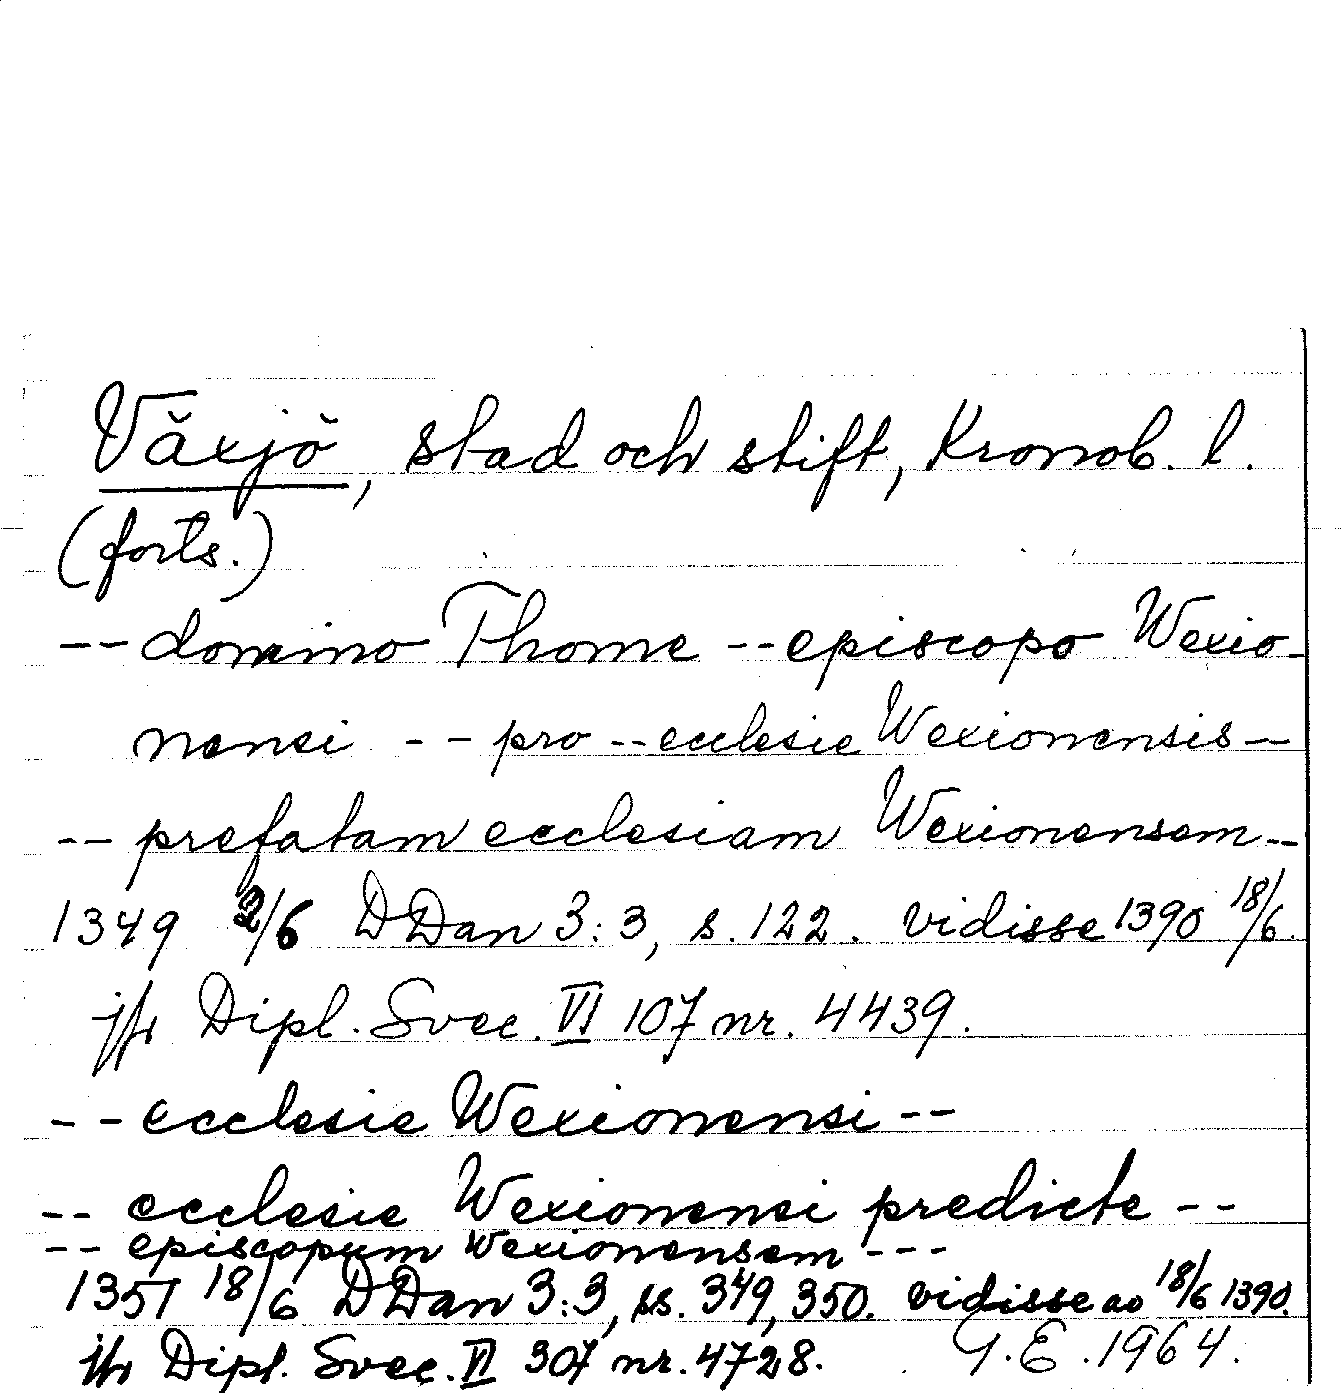 Växjö, stad och stift, Kronob. l.
(forts.)
-- domino Thome -- episcopo Wexio-
nensi -- pro -- ecclesie Wexionensis --
-- prefatam ecclesiam Wexionensem --
1349 2/6 DDan 3:3, s. 122. vidisse 1390 18/6.
jfr Dipl. Svec. VI 107 nr. 4439.
-- ecclesie Wexionensi --
-- ecclesie Wexionensi predicte --
-- episcopum Wexionensem ---
1351 18/6 DDan 3:3, ss. 349, 350. vidisse ao 18/6 1390.
jfr Dipl. Svec. VI 307 nr. 4728. G.E. 1964.